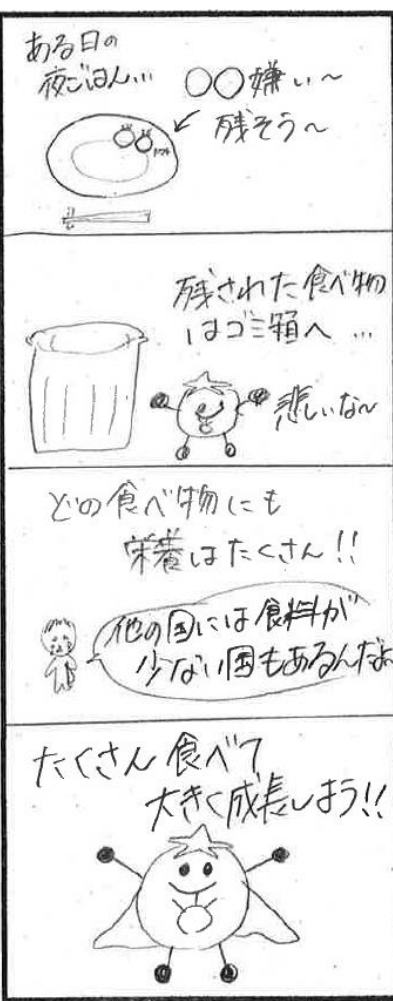 ある日の
夜ごはん…
○○嫌い～
残そう～
トマト
残された食べ物
はゴミ箱へ…
悲しいな～
どの食べ物にも
栄養はたくさん!!
他の国には食料が
少ない国もあるんだよ
たくさん食べて
大きく成長しよう!!